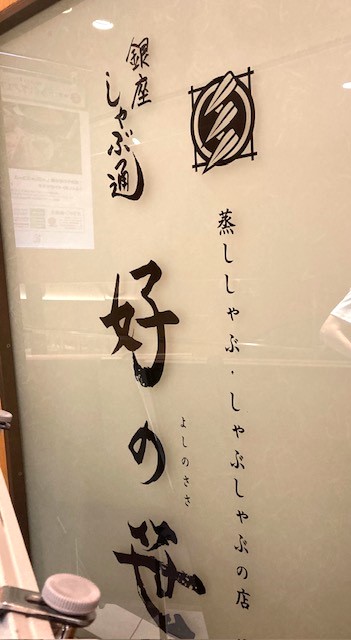 蒸ししゃぶ・しゃぶしゃぶの店
よしのささ
銀座
しゃぶ通
好の笹